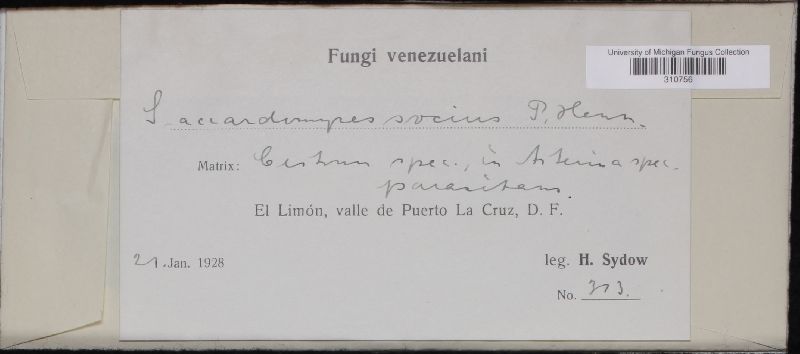 Fungi venezuelani
University of Michigan Fungus Collection
310756
Saccardomyces socius P. Henn.
Matrix: Cestrum spec., in Asterina spec.
parasitans.
El Limón, valle de Puerto La Cruz, D. F.
21. Jan. 1928
leg. H. Sydow
No. 313.